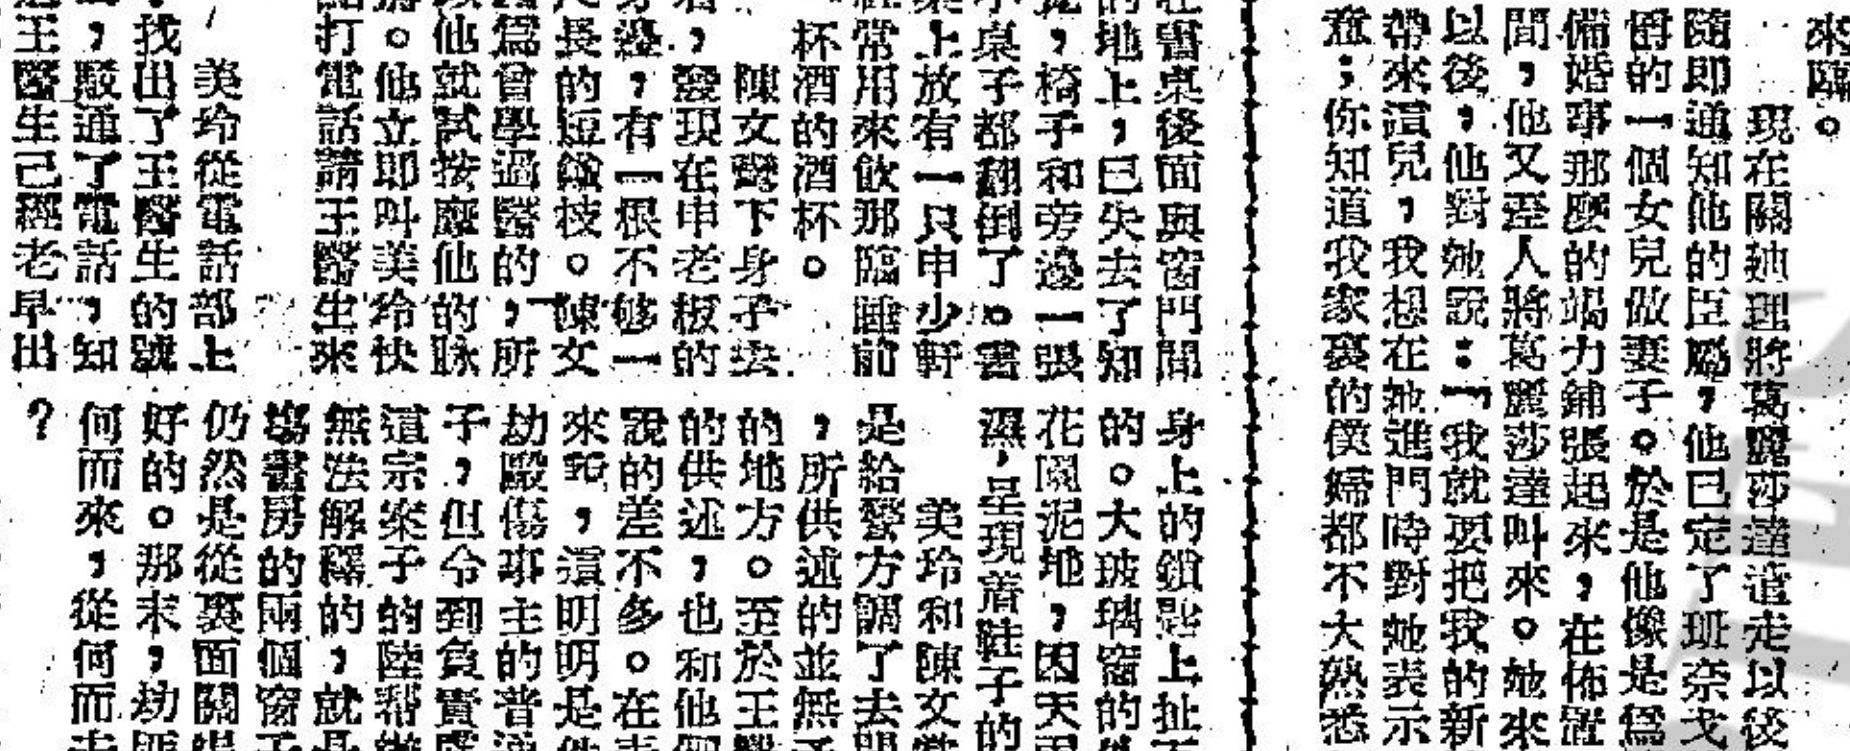 來臨。
現在關她理將葛麗莎達遣走以後
隨即通知他的臣屬，他已定了班奈戈
爵的一個女兒做妻子。於是他像是爲
備婚事那麼的竭力鋪張起來，在佈置
間，他又歪人將葛麗莎達叫來。她來
以後，他對她說：「我就要把我的新
帶來這兒，我想在她進門時對她表示
意；你知道我家裏的僕婦都不大熟悉
書桌後面與窗門間
的地上，已失去了知
覺，椅子和旁邊一張
小桌子都翻倒了。書
桌上放有一只申少軒
經常用來飲那臨睡前
一杯酒的酒杯。
陳女聲下身子去
，發現在申老板的
身邊，有一根不够一
尺長的短鐵枝。陳文
爲曾學過醫的，所
他就試按摩他的脉
。他立即叫美玲快
打電話請王醫生來
美玲從電話部上
，找出了王醫生的號
，駁通了電話，知
王醫生己經老早出
身上的鎖匙上扯
的。大玻璃窗的
花園泥地，因天
濕，呈現着鞋子的
美玲和陳文
是給警方調了去
，所供述的並無
的地方。至於王
的供述，也和他
說的差不多。在
來，這明明是
劫毆傷事主的普
子，但令到負責
這宗案子的陸
無法解釋的，就
書房的兩個窗
仍然是從裏面關
好的。那末，劫匪
何而來，從何而
？